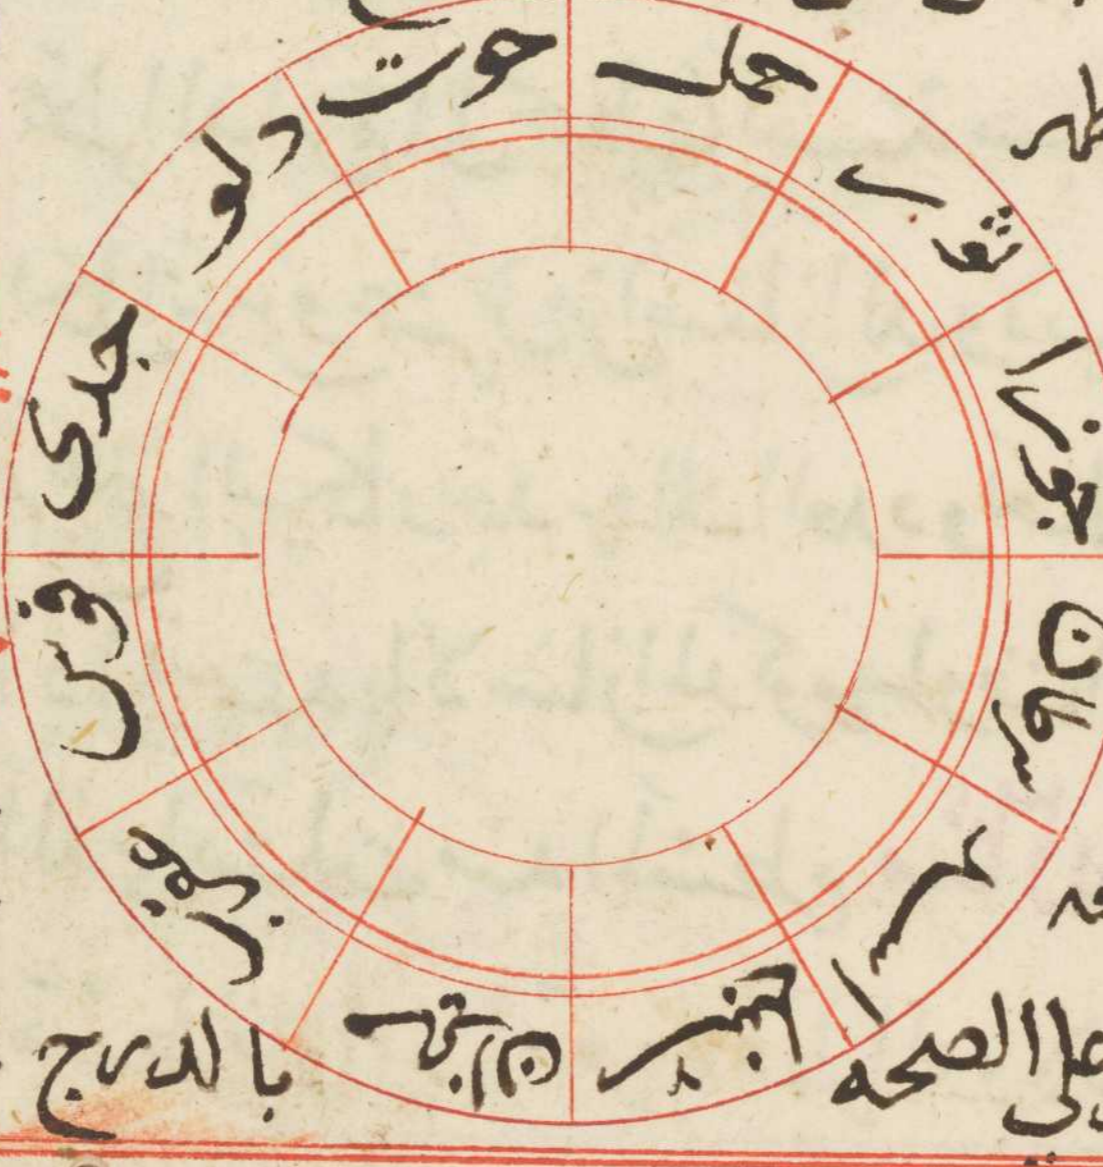 حمل
ثور
جوزا
سرطان
اسد
سنبله
ميزان
عقرب
قوس
جدى
دلو
حوت
الصحه
بالدرج